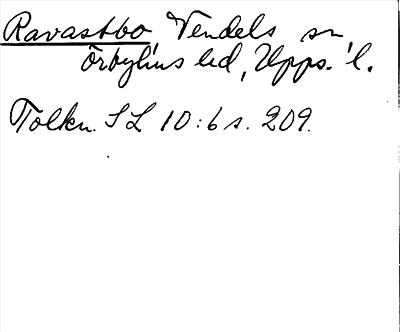 Ravastbo Vendels sn,
Örbyhus hd, Upps. l.
Tolkn. SL 10:6 s. 209.